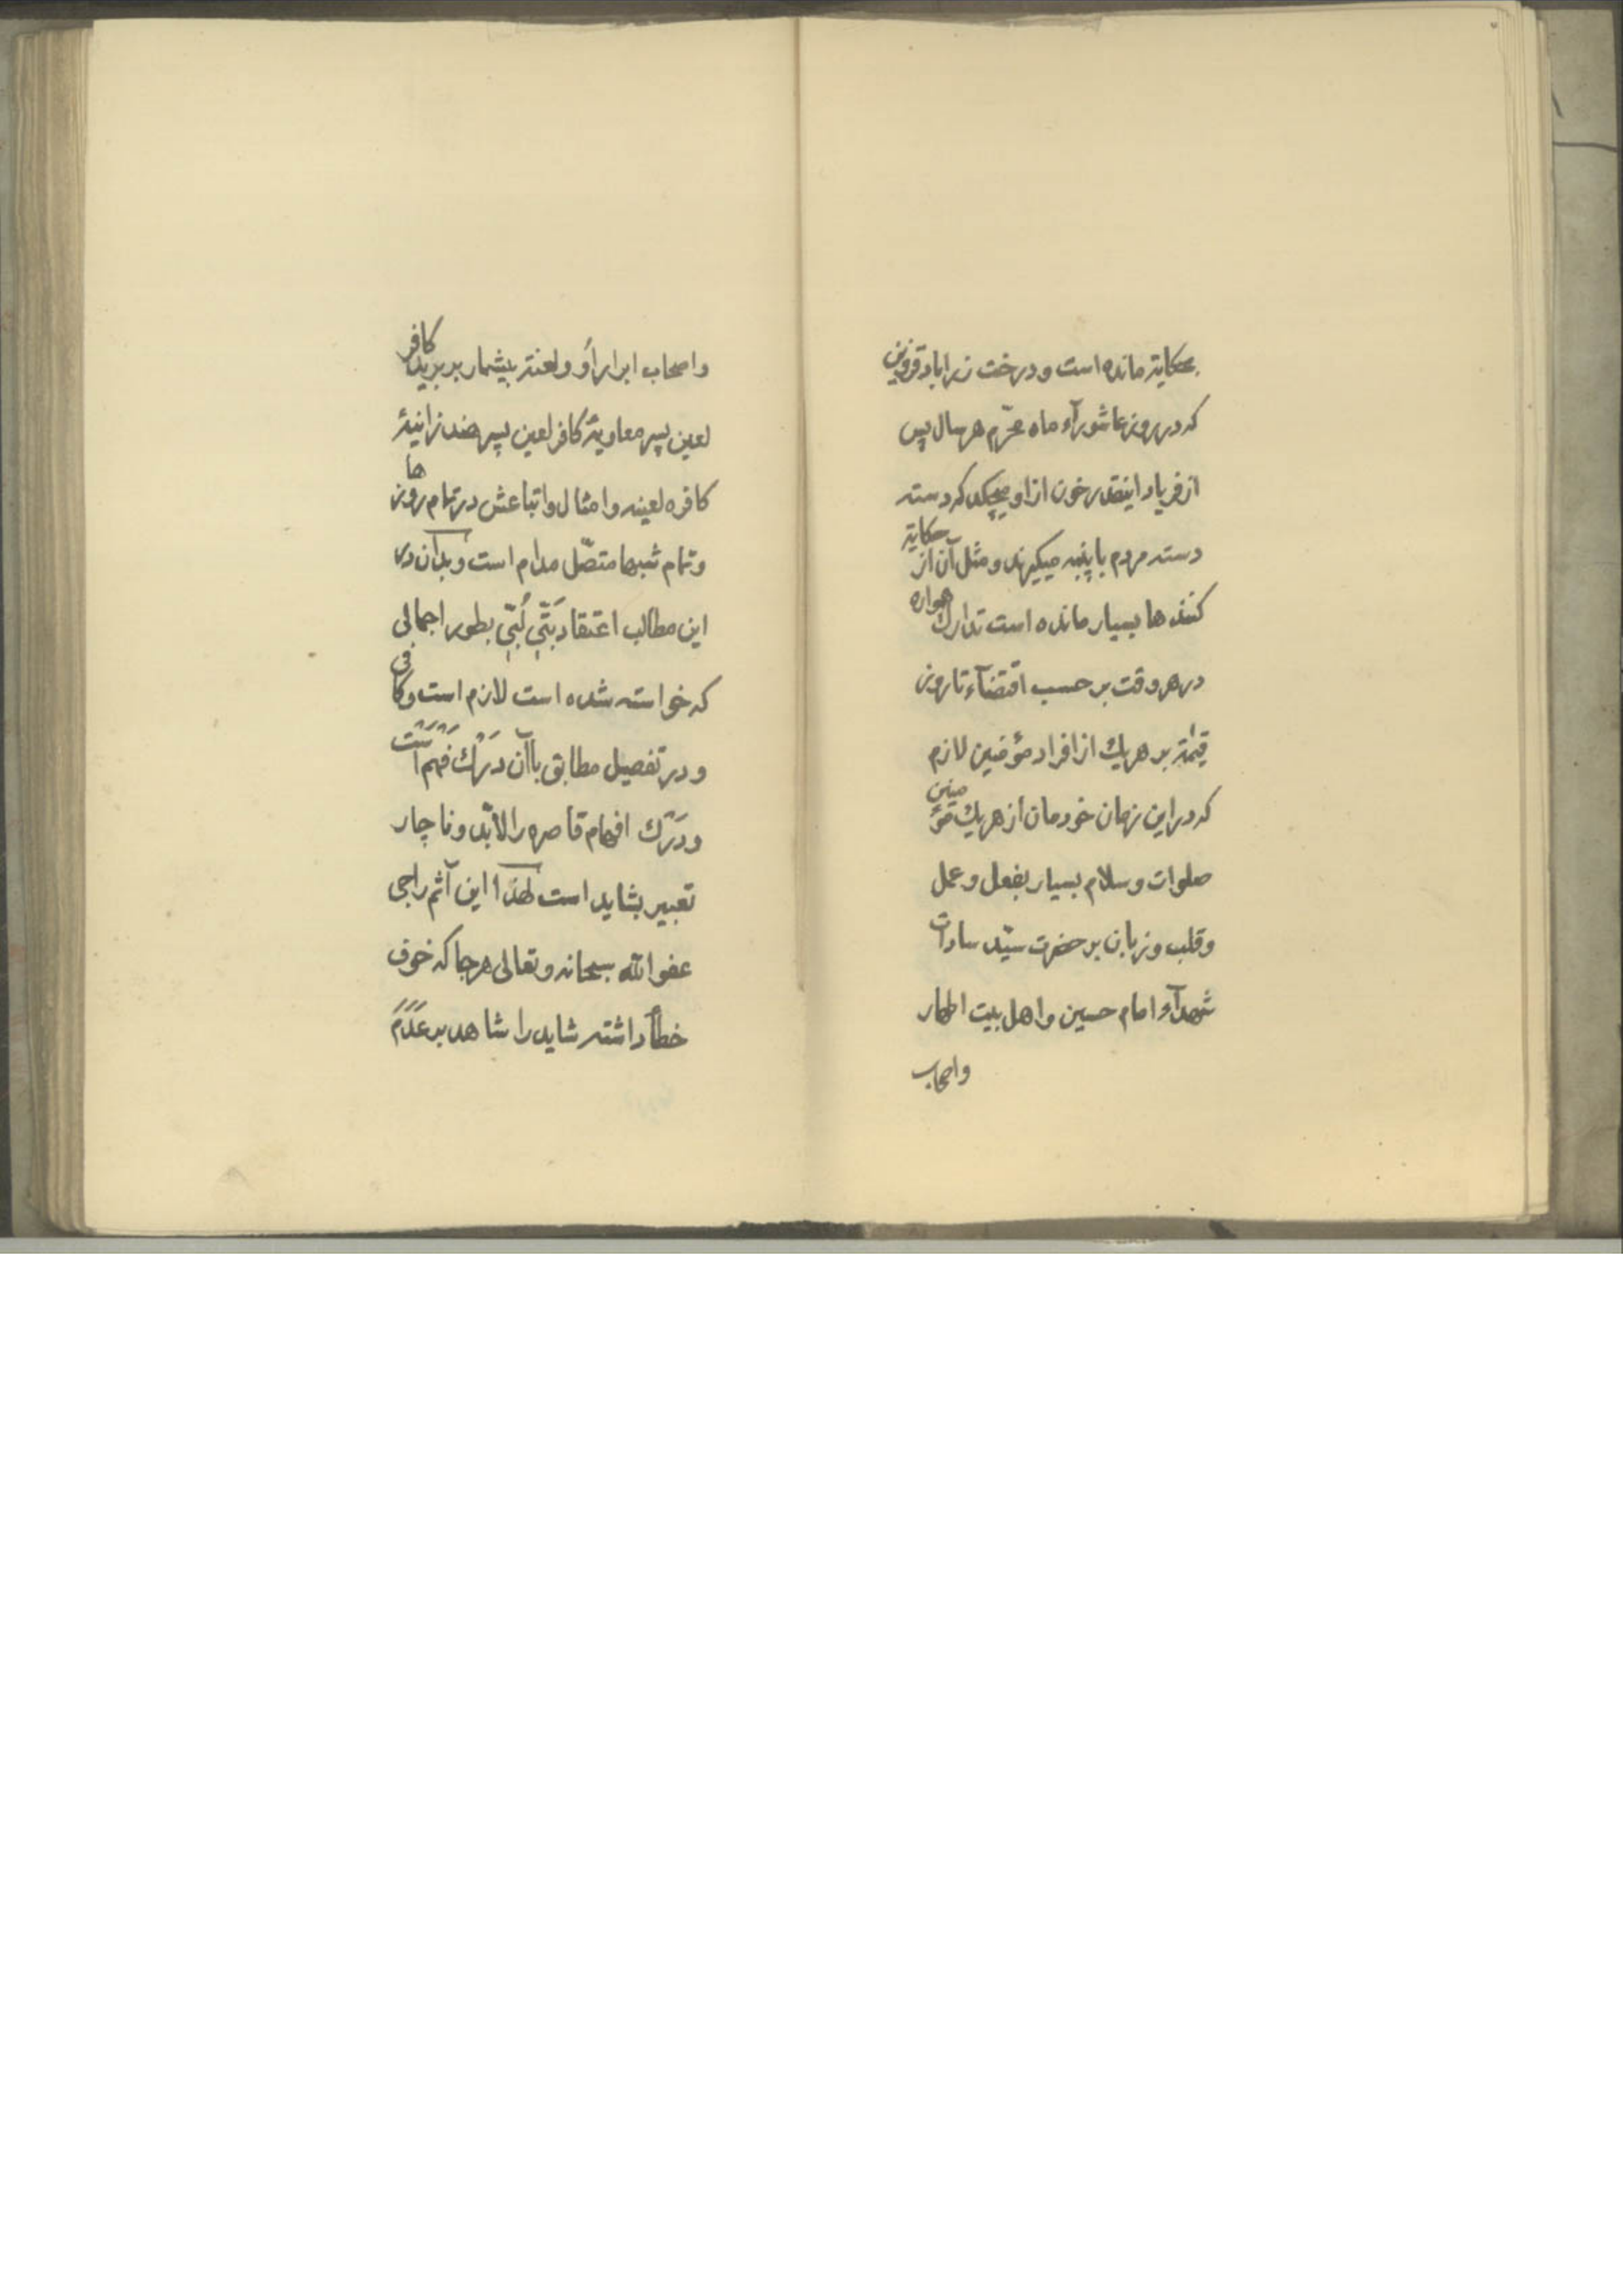 بحکایة مانده است و درخت زراباد قزوین
که در روز عاشورآء ماه محرّم هر سال پس
از فریاد اینقدر خون از او میچکد که دسته
دسته مردم با پنبه میگیرند و مثل آن از حکایة
کننده ها بسیار مانده است تدارک همواره
در هر وقت بر حسب اقتضآء تا روز
قیٰمة بر هر یک از افراد مؤمنین لازم
که در این زمان خودمان از هر یک مؤمنین
صلوات و سلام بسیار بفعل و عمل
و قلب و زبان بر حضرت سیّد سادات
شهدآء امام حسین و اهل بیت اطهار
واصحاب
واصحاب ابرار او و لعنة بیشمار بر یزید کافر
لعین پسر معاویهٔ کافر لعین پسر هند زانیهٔ
کافره لعینه و امثال و اتباعش در تمام روز ها
و تمام شبها متصّل مدام است و بدان در
این مطالب اعتقاد بَتّی لُبّی بطور اجمالی
که خواسته شده است لازم است و کافی
و در تفصیل مطابق با آن دَرْک فهم است
و دَرْک افهام قاصره را لابّد و ناچار
تعبیر بشاید است لهذا این آثم راجی
عفو الله سبحانه و تعالی هر جا که خوف
خطأ داشته شاید را شاهد بر عَدَم